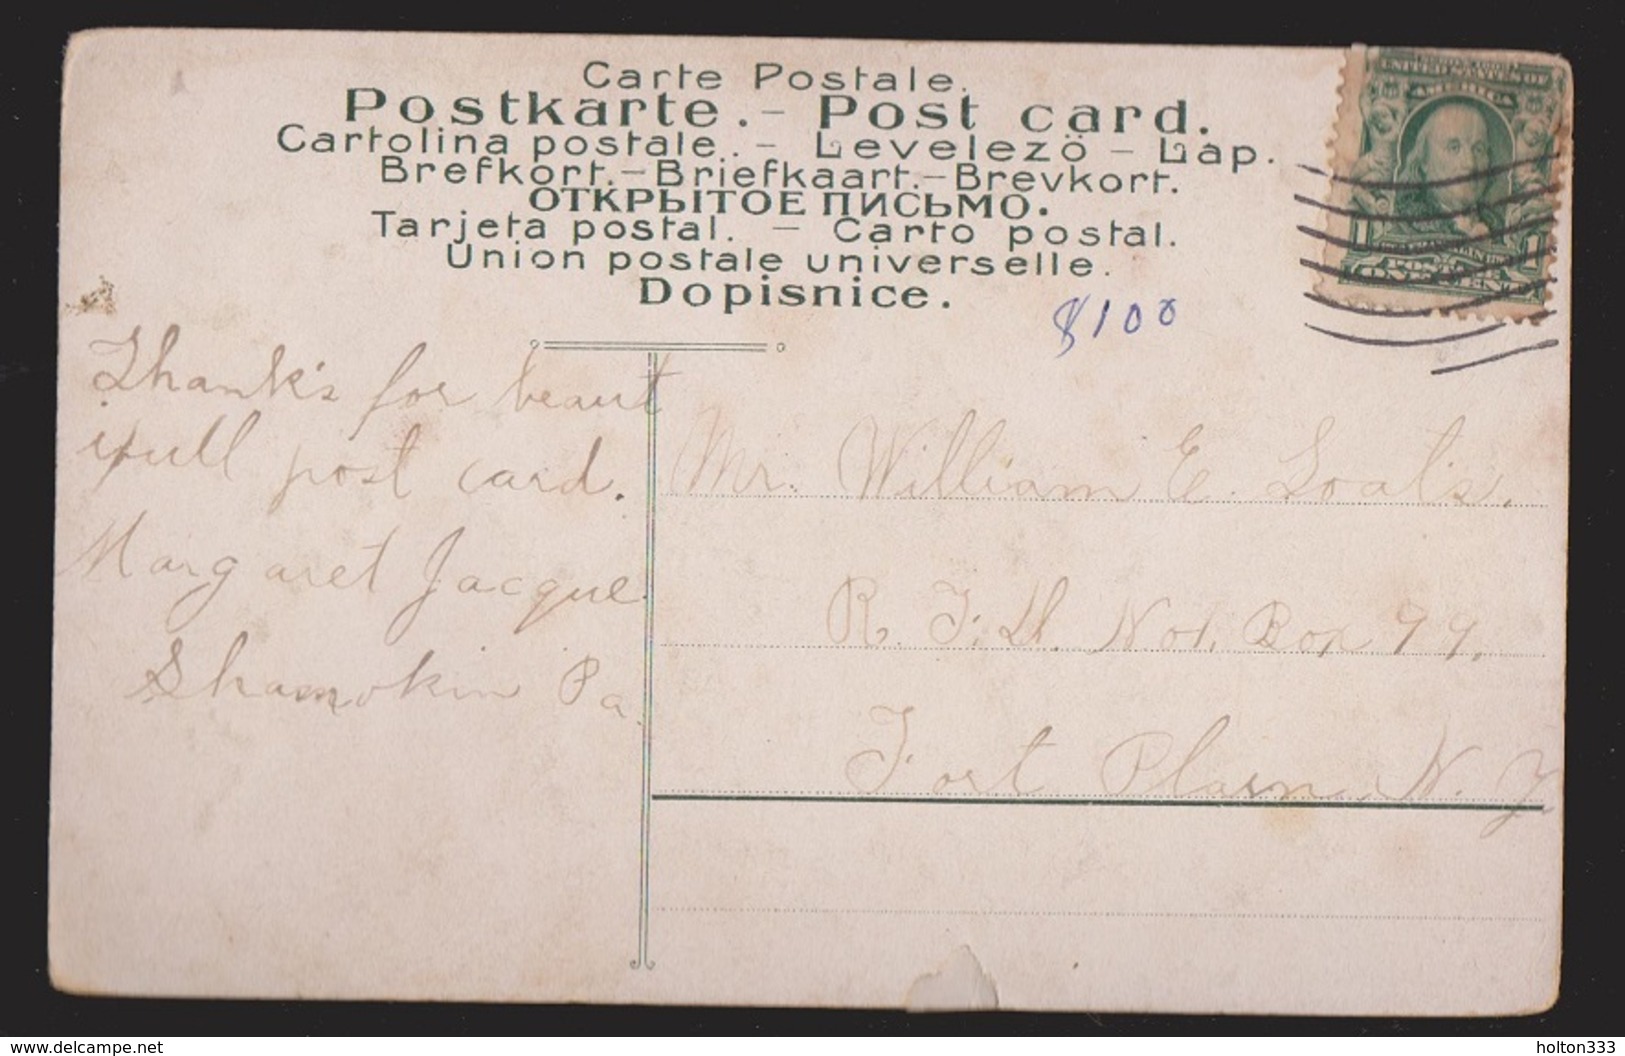 Carte Postale.
Postkarte.- Post card.
Cartolina postale. - Levelezö - Lap.
Brefkort.-Briefkaart.-Brevkort.
ОТКРЫТОЕ ПИСЬМО.
Tarjeta postal. - Carto postal.
Union postale universelle.
Dopisnice.
$100
Thank's for beaut
ifull post card.
Margaret Jacque
Shamokin Pa.
Mr. William E. Loats.
R. F. D. No1. Box 99.
Fort Plain N. Y
UNITED STATES OF
AMERICA
1 1
ONE CENT
www.delcampe.net
holton333